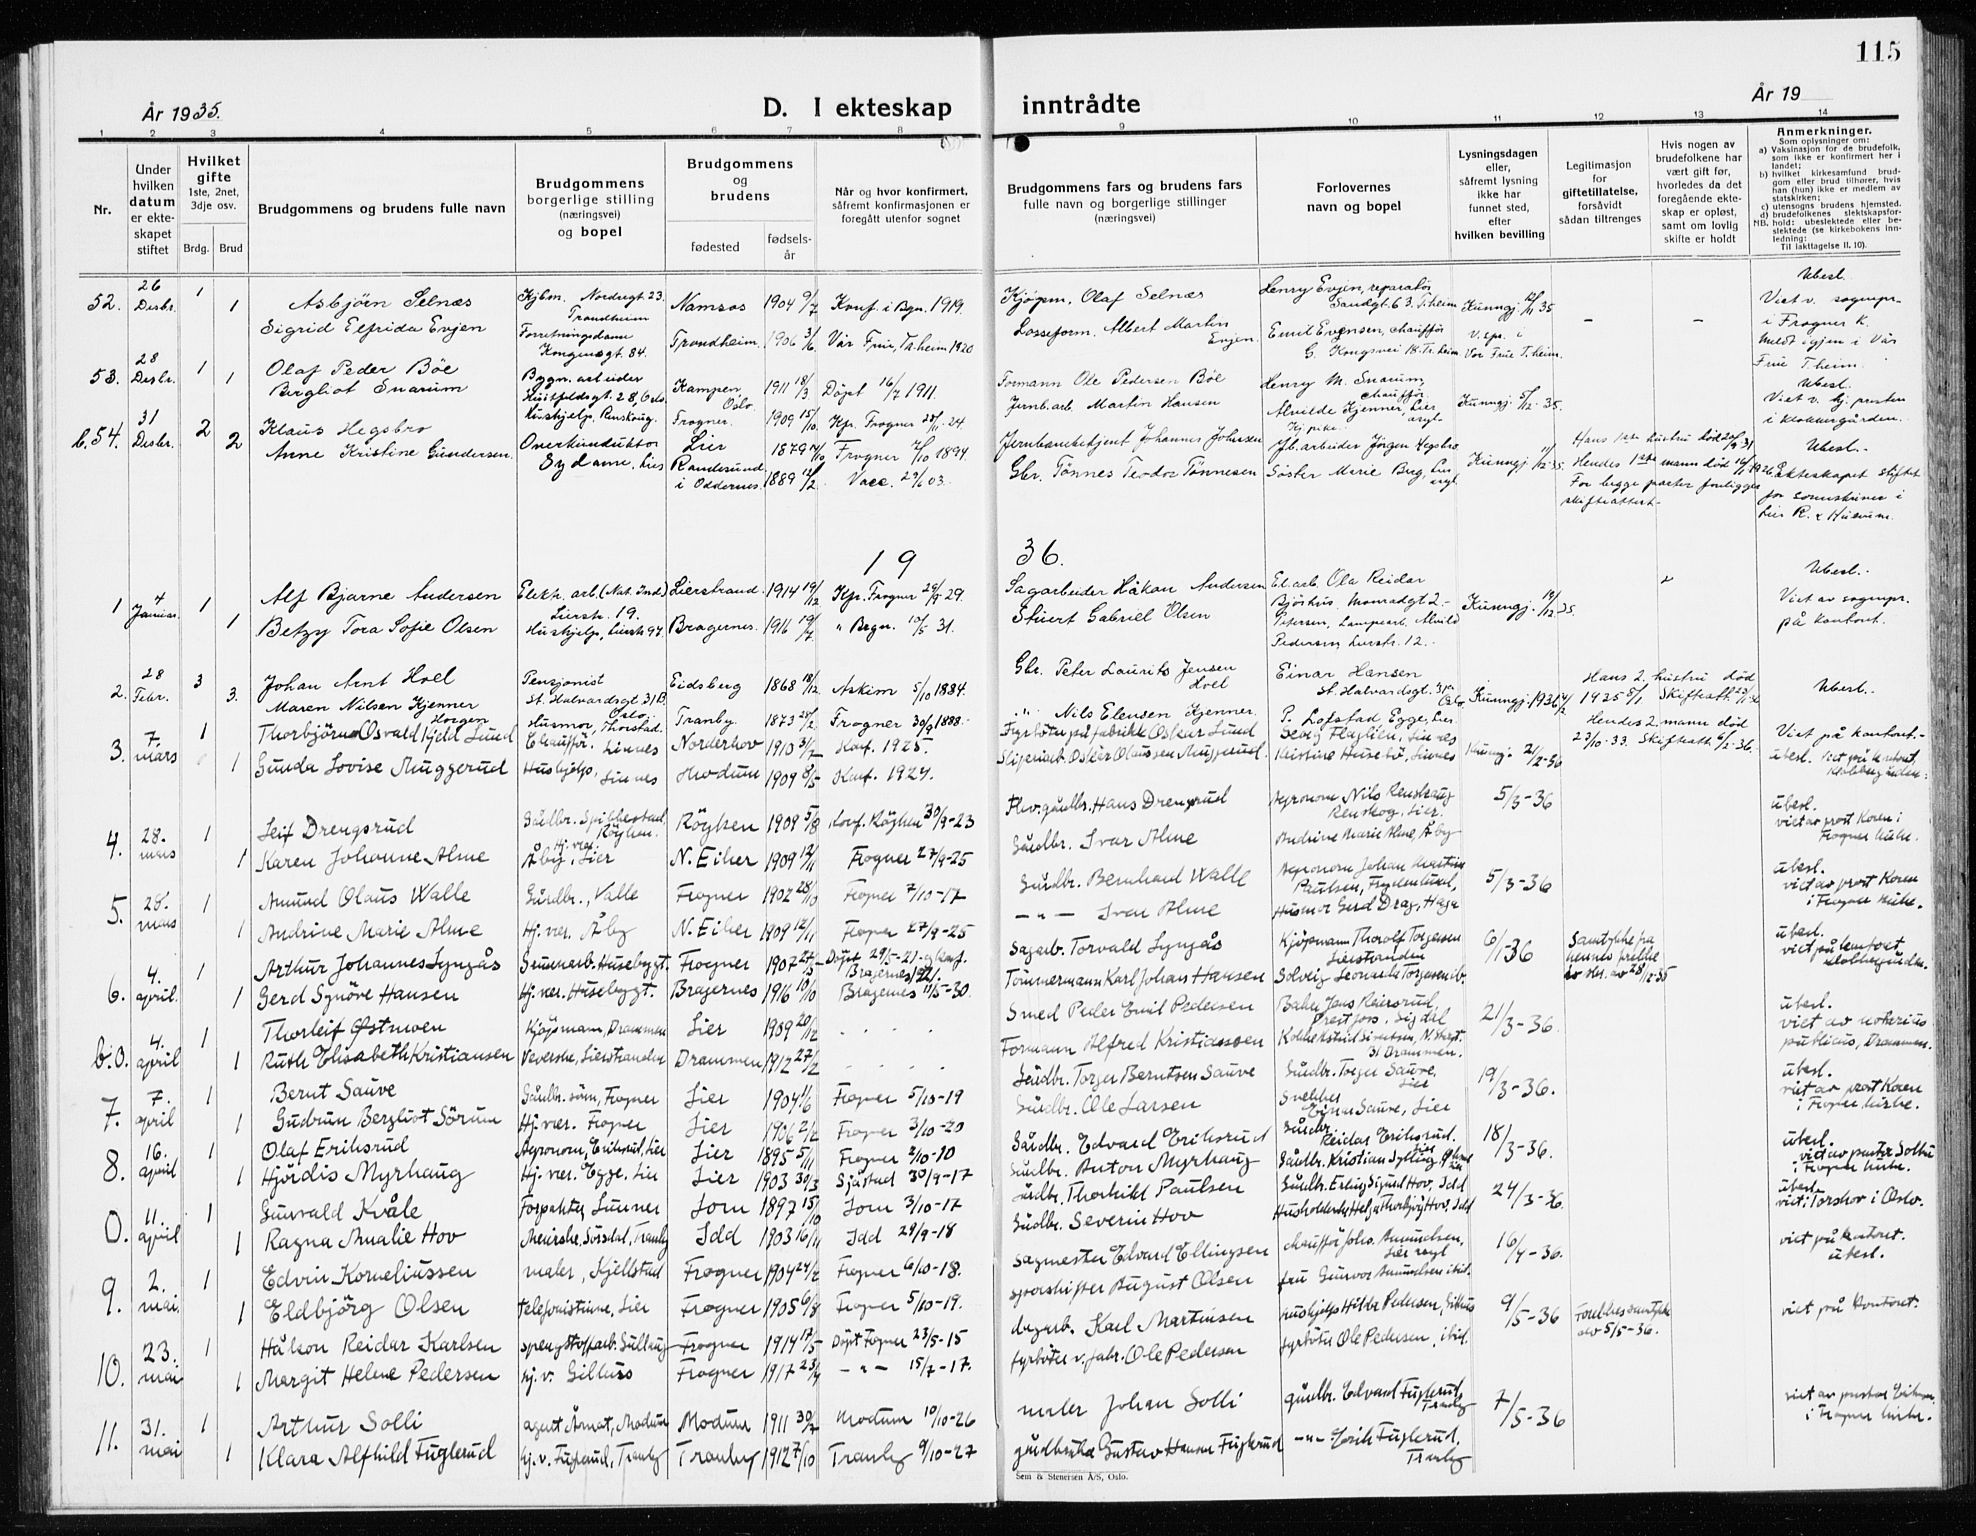 115
År 1935.
D. I ekteskap inntrådte
År 19
1 2 3 4 5 6 7 8 9 10 11 12 13 14
Nr.
Under hvilken datum er ekteskapet stiftet
Hvilket gifte
1ste, 2net, 3dje osv.
Brdg. Brud
Brudgommens og brudens fulle navn
Brudgommens borgerlige stilling (næringsvei) og bopel
Brudgommens og brudens
fødested
fødselsår
Når og hvor konfirmert, såfremt konfirmasjonen er foregått utenfor sognet
Brudgommens fars og brudens fars fulle navn og borgerlige stillinger (næringsvei)
Forlovernes navn og bopel
Lysningsdagen eller, såfremt lysning ikke har funnet sted, efter hvilken bevilling
Legitimasjon for giftetillatelse, forsåvidt sådan tiltrenges
Hvis nogen av brudefolkene har vært gift før, hvorledes da det foregående ekteskap er opløst, samt om lovlig skifte er holdt
Anmerkninger.
Som oplysninger om:
a) Vaksinasjon for de brudefolk, som ikke er konfirmert her i landet;
b) hvilket kirkesamfund brudgom eller brud tilhører, hvis han (hun) ikke er medlem av statskirken;
c) utensogns brudens hjemsted.
d) brudefolkenes slektskapsforhold: ubeslektede eller beslektede (se kirkebokens innledning:
NB.
Til iakttagelse II, 10).
52. 26 Desbr. 1 Asbjørn Selnæs Kjbm. Nordregt. 23. Trondheim Namsos 1904 9/7 Konf. i Bgn. 1919. Kjøpm. Olaf Selnæs Henry Evjen, reparatør Sandgt. 63. T.heim Kunngj. 35 Ubesl. Viet v. sognepr. i Frogner K.
1 Sigrid Elfrida Evjen Forretningsdame Kongensgt. 84. Trondheim. 1906 3/16 Vår Frue, T.heim 1920 Losseform. Albert Martin Evjen. Emil Evensen, chaufför V. spr. i Vor Frue T.heim. – – meldt igjen i Vår Frue T.heim.
53. 28 Desbr. 1 Olaf Peder Böe Bygn. arbeider Huitfeldtsgt. 28, Oslo Kampen Oslo. 1911 18/3 Döpt 16/7 1911. Formann Ole Pedersen Böe Henry M. Snarum, chaufför Ubesl.
1 Bergliot Snarum Hushjelp, Renskaug. Frogner. 1909 15/10. Kp. Frogner 28/9-24. Jernb.arb. Martin Hansen Alvilde Kjenner, Lier Kunngj. 5/12-35. Viet v. hj. presten i klokkergården.
b.54. 31 Desbr. 2 Klaus Hegsbro Overkonduktør Lier 1879 14/10 Frogner 7/10 1894 Jernbanebetjent Johannes Johnsen Jb. arbeider Jörgen Hegsbro Hans 1ste hustru död 20/9-31 Ubesl.
2 Anne Kristine Gundersen. Sydame, Lier Randesund i Oddernes. 1889 12/2. Vacc. 29/6 03. Gbr. Tönnes Teodor Tönnesen Söster Marie Berg, Lier Kunngj. 11/12-35. Hendes 1ste mann död 1926. For begge parter foreligger skifteattest. Ekteskapet stiftet for sorenskriver i Lier R. & Hurum.
1936.
1 4 Januar 1 Alf Bjarne Andersen Elektr. arb. (Nat. Ind.) Lierstr. 19. Lierstrand. 1914 19/12 Kp. Frogner 29/9 29. Sagarbeider Håkon Andersen El.arb. Ola Reidar Björkhus, Monradgt 2.– Ubesl.
1 Betzy Tora Sofie Olsen Hushjelp, Lierstr. 97. Bragernes. 1916 19/7 " Bragn. 10/5 31. Stuert Gabriel Olsen Petersen, Lampearb. Alvild Pedersen Lierstr. 12.– Kunngj. 19/12 35. Viet av sognepr. på kontoret.
2. 28 Febr. 3 Johan Arnt Hoel Pensjonist St. Halvardsgt 31B. Oslo Eidsberg 1868 18/12 Askim 5/10 1884. Gbr. Peter Laurits Jensen Hoel Einar Hansen St. Halvardsgt. 31 Oslo Kunngj. 1936 Hans 2. hustru död 1925 5/1 Skifteatt. Ubesl.
3. Maren Nilsen Kjenner Horgen Husmor, Thorstad. Tranby. 1873 28/2. Frogner 30/9 1888. " Nils Elensen Kjenner P. Lofstad Egge, Lier Hendes 2. mann död 23/10-33. Skifteatt. 6/2-36.
3. 7 mars 1 Thorbjörn Osvald Kjell Lund Chauffør. Linnes Norderhov 1910 3/7 Konf. 1925. Fyrböter på fabrikk Oskar Lund Georg Flaglien, Linnes Viet på kontoret.–
1 Gunda Lovise Muggerud Hushjelp, Linnes Modum 1909 8/5 Konf. 1924. Sliperiarb. Oskar Olaussen Muggerud Kristine Husebö, Linnes Kunngj. 21/2-36 ubesl.
4. 28. mars 1 Leif Drengsrud Gårdbr. Spikkestad, Röyken. Röyken 1909 5/8 Konf. Röyken 30/9-23 Fhv. gårdbr. Hans Drengsrud Agronom Nils Renskaug Renskog, Lier. 5/3-36 ubesl. viet av prost Koren i Frogner kirke.
1 Karen Johanne Alme Hj. vær. Åby, Lier N. Eiker 1909 12/11 Frogner 27/9-25 Gårdbr. Ivar Alme Andrine Marie Alme, Åby
5. 28. mars 1 Amund Olaus Walle Gårdbr., Valle Frogner 1902 28/10 Frogner 7/10-17 Gårdbr. Bernhard Walle Agronom Johan Kristian Paulsen, Frydenlund, 5/3-36 ubesl. viet av prost Koren i Frogner kirke.
1 Andrine Marie Alme Hj. vær. Åby N. Eiker 1909 12/11 Frogner 27/9-25 –"– Ivar Alme Husmor Gerd Drag, Haga
6. 4. april. 1 Arthur Johannes Lyngås Gummarb. Husebygt. Frogner 1907 27/5 Döpt 29/5-21 og konf. Bragernes 1921. Sagarb. Torvald Lyngås Kjöpmann Thorolf Torgersen Lierstranden 6/1-36 Samtykke fra hennes foreldre av 28/12-35 ubesl. viet på kontoret
1 Gerd Synöve Hansen Hj. vær. Husebygt. Bragernes 1916 10/10 Bragernes 11/5-30. Tömmermann Karl Johan Hansen Solveig Leonarda Torgersen ib.
b.0. 4. april 1 Thorleif Östmoen Kjöpmann, Drammen Lier 1909 20/12 . . . . Smed Peder Emil Pedersen Baker Jens Reiersrud, Prestfoss, Sigdal 21/3-36. ubesl. viet av notarius publicus, Drammen.
1 Ruth Elisabeth Kristiansen Veverske, Lierstranden Drammen 1912 27/2 . . . . Formann Alfred Kristiansen 31 Drammen.
7. 7. april 1 Bernt Sauve Gårdbr. sönn, Frogner Lier 1904 1/6 Frogner 5/10-19 Gårdbr. Torger Berntsen Sauve Gårdbr. Torger Sauve, Lier 19/3-36. ubesl. viet av prost Koren i Frogner kirke.
1 Gudrun Bergliot Sörum Hj. vær. Frogner Lier 1906 2/2 Frogner 3/10-20 Gårdbr. Ole Larsen Snekker Einar Sauve, Lier
8. 16. april 1 Olaf Eriksrud Agronom, Eriksrud, Lier Lier 1895 5/11 Frogner 2/10-10 Gårdbr. Edvard Eriksrud Gårdbr. Reidar Eriksrud. 18/3-36. ubesl. viet av pastor Solbu i Frogner kirke.
1 Hjördis Myrhaug Hj. vær. Egge, Lier Lier 1903 30/3 Sjåstad 30/9-17 Gårdbr. Anton Myrhaug Gårdbr. Kristian Sylling
0. 11. april 1 Gunvald Kvåle Forpakter, Lunner Jom 1897 15/10 Jom 3/10-17 Gårdbr. Thorkild Paulsen Gårdbr. Erling Sigurd Hov, Idd 24/3-36. ubesl. viet i Torshov i Oslo.
1 Ragna Amalie Hov Meierske, Sörsdal, Tranby Idd 1903 16/11 Idd 29/9-18 Gårdbr. Severin Hov Husholderske Helga Thorbjörg Hov, Idd
9. 2. mai. 1 Edvin Korneliussen maler, Kjellstad Frogner 1904 24/2 Frogner 6/10-18. Sagmester Edvard Ellingsen chaufför Johs. Amundsen, 16/4-36. viet på kontoret. ubesl.
1 Eldbjörg Olsen telefonistinne, Lier Frogner 1905 6/8 Frogner 5/10-19. Sporskifter August Olsen fru Gunvor Amundsen ibid.
10. 23. mai 1 Håkon Reidar Karlsen sprengstoffarb. Gullaug Frogner 1914 17/5 Döpt Frogner 23/5-15 dagarb. Karl Martinsen hushjelp Hilda Pedersen, Gilhus 9/5-36 Foreldres samtykke av 5/5-36. viet på kontoret.
1 Margit Helene Pedersen hj. v. Gilhus Frogner 1917 23/4 –"– 15/7-17. fyrböter v. fabr. Ole Pedersen fyrböter Ole Pedersen, ibid.
11. 31. mai 1 Arthur Solli agent Åmot, Modum Modum 1911 30/7 Modum 10/10-26 maler Johan Solli gårdbr. Edvard Fuglerud, Tranby 7/5-36 i Frogner kirke.
1 Klara Alfhild Fuglerud hj. v. Fuglerud, Tranby Tranby 1912 7/10 Tranby 9/10-27 gårdbruker Gustav Hansen Fuglerud –"– Eirik Fuglerud, Tranby
Sem & Stenersen A/S, Oslo.